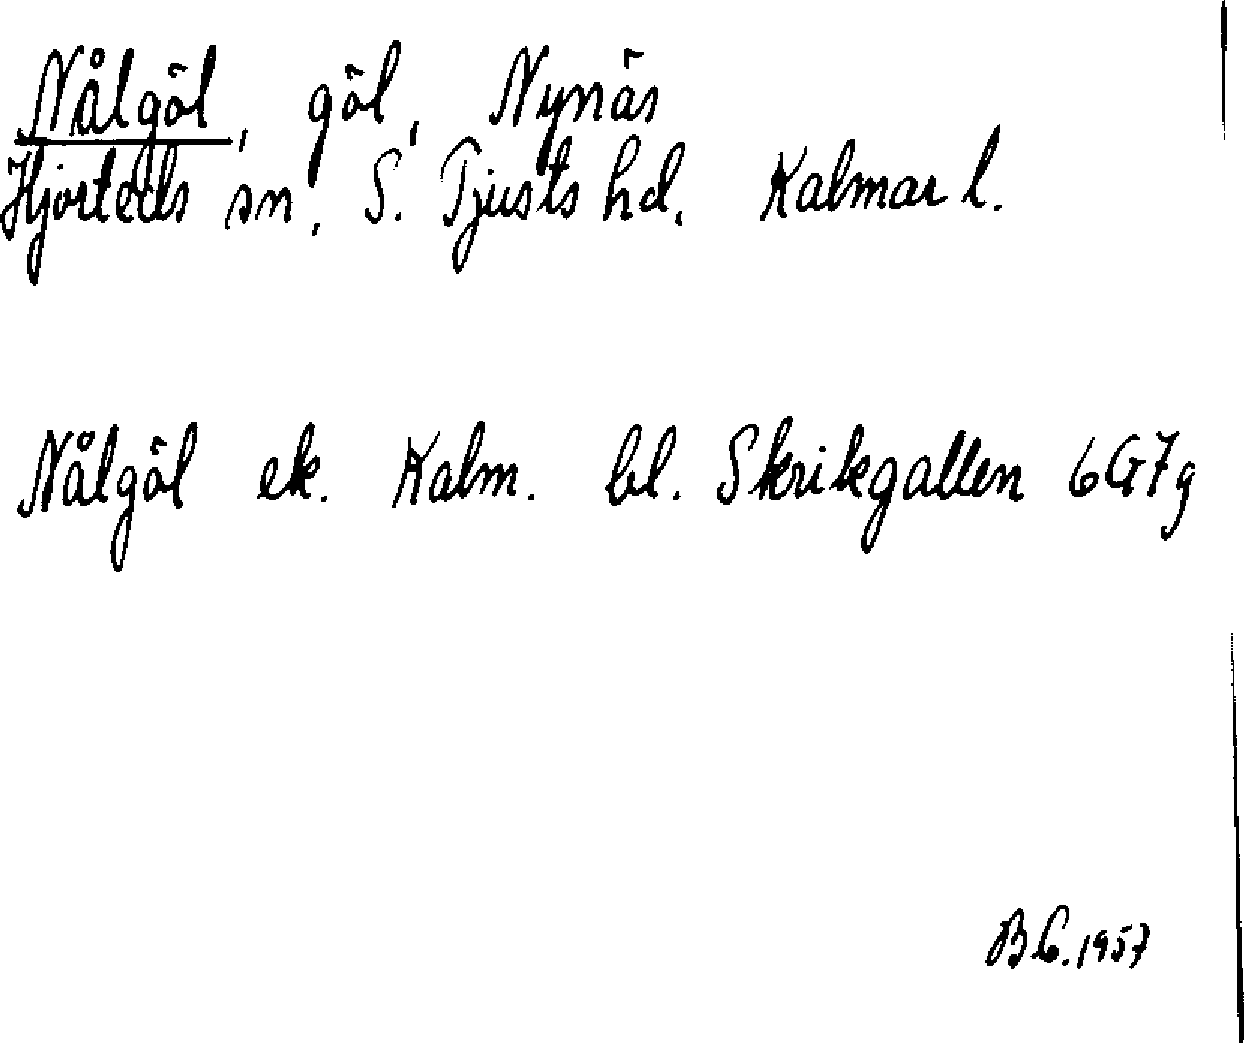 Nålgöl, göl, Nynäs
Hjorteds sn, S. Tjusts hd, Kalmar l.
Nålgöl ek. Kalm. bl. Skrikgallen 6G7g
B.G. 1957